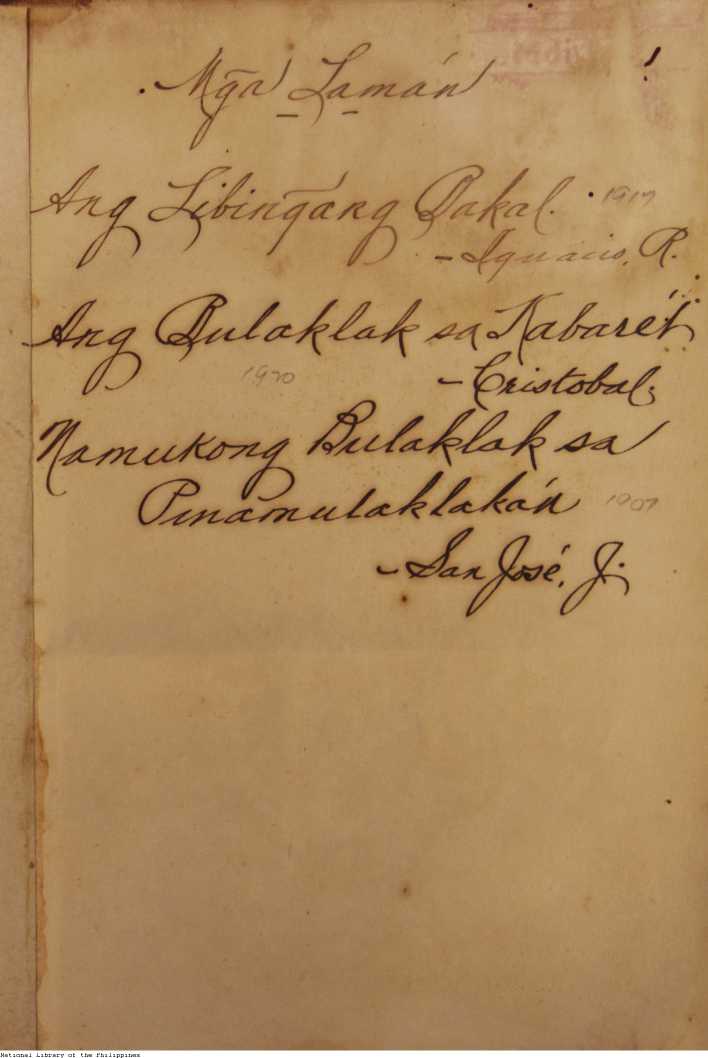 Mg̃a Lamán
Ang Libing̃áng Bakal. 1917
- Ignacio, R.
Ang Bulaklak sa Kabarét
1920 - Cristobal,
Namukong Bulaklak sa
Pinamulaklakán 1907
- San José, J.
National Library of the Philippines